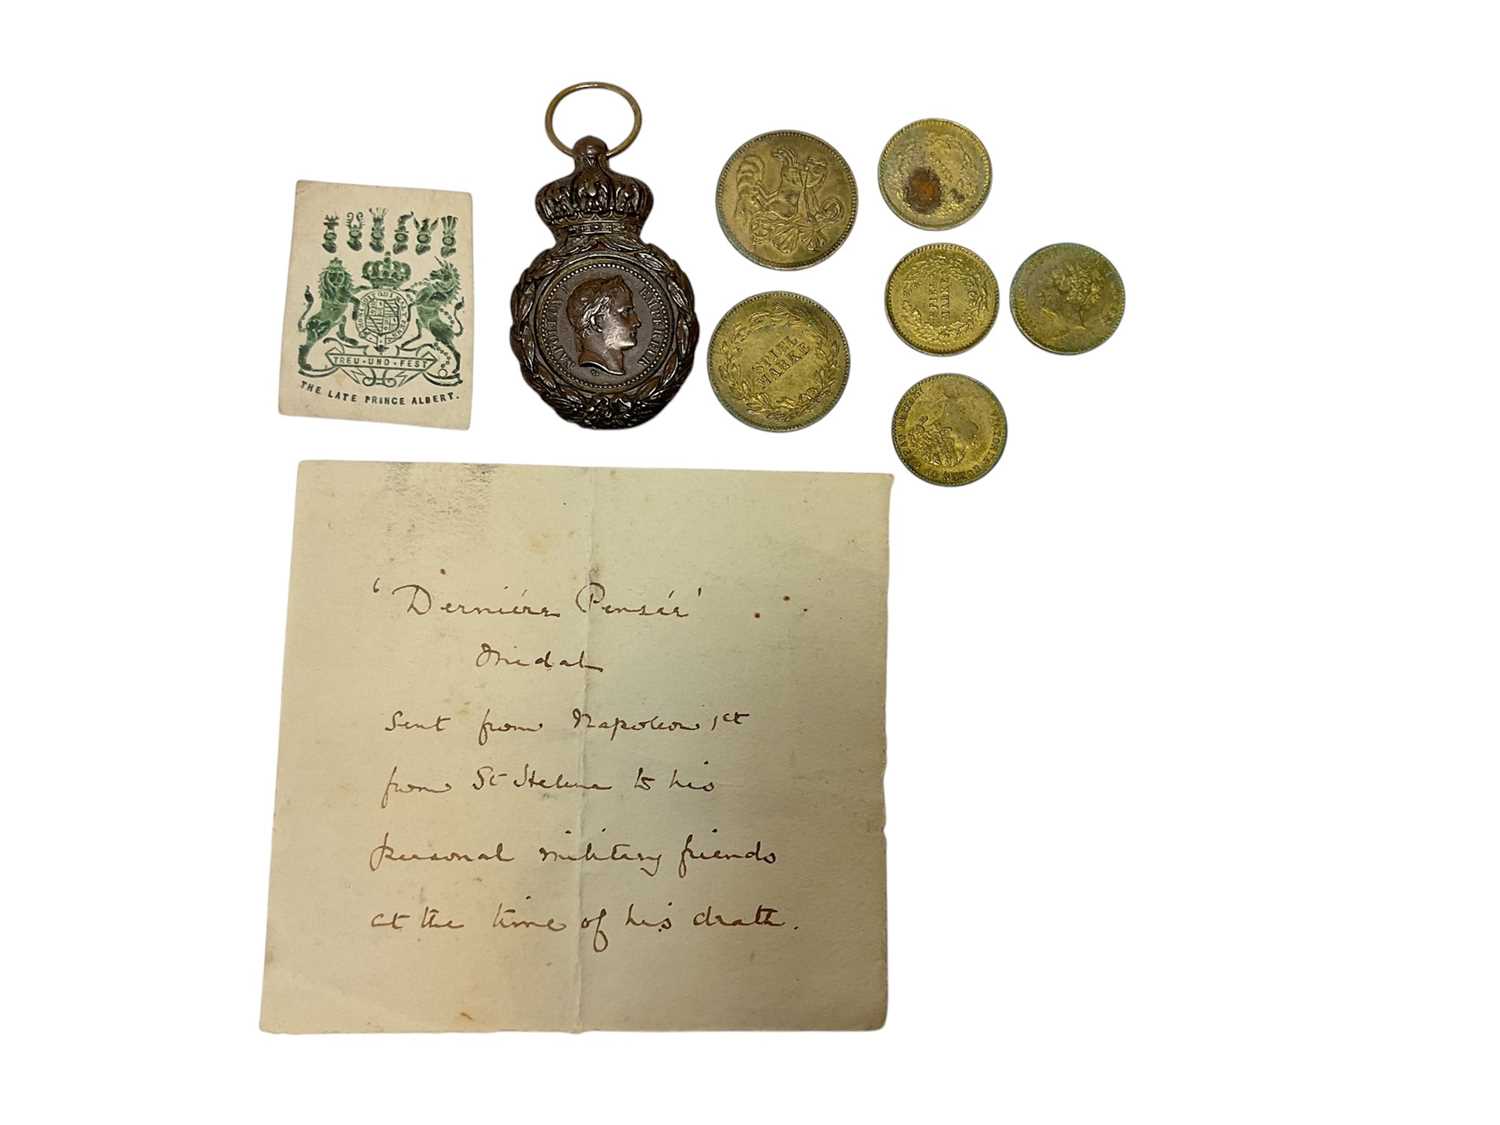 TREU · UND · FEST
THE LATE PRINCE ALBERT.
NAPOLEON I
EMPEREUR
SPIEL
MARKE
SPIEL
MARKE
'Derniére Pensée'
Medal
Sent from Napoleon 1st
from St Helena to his
personal military friends
at the time of his death.